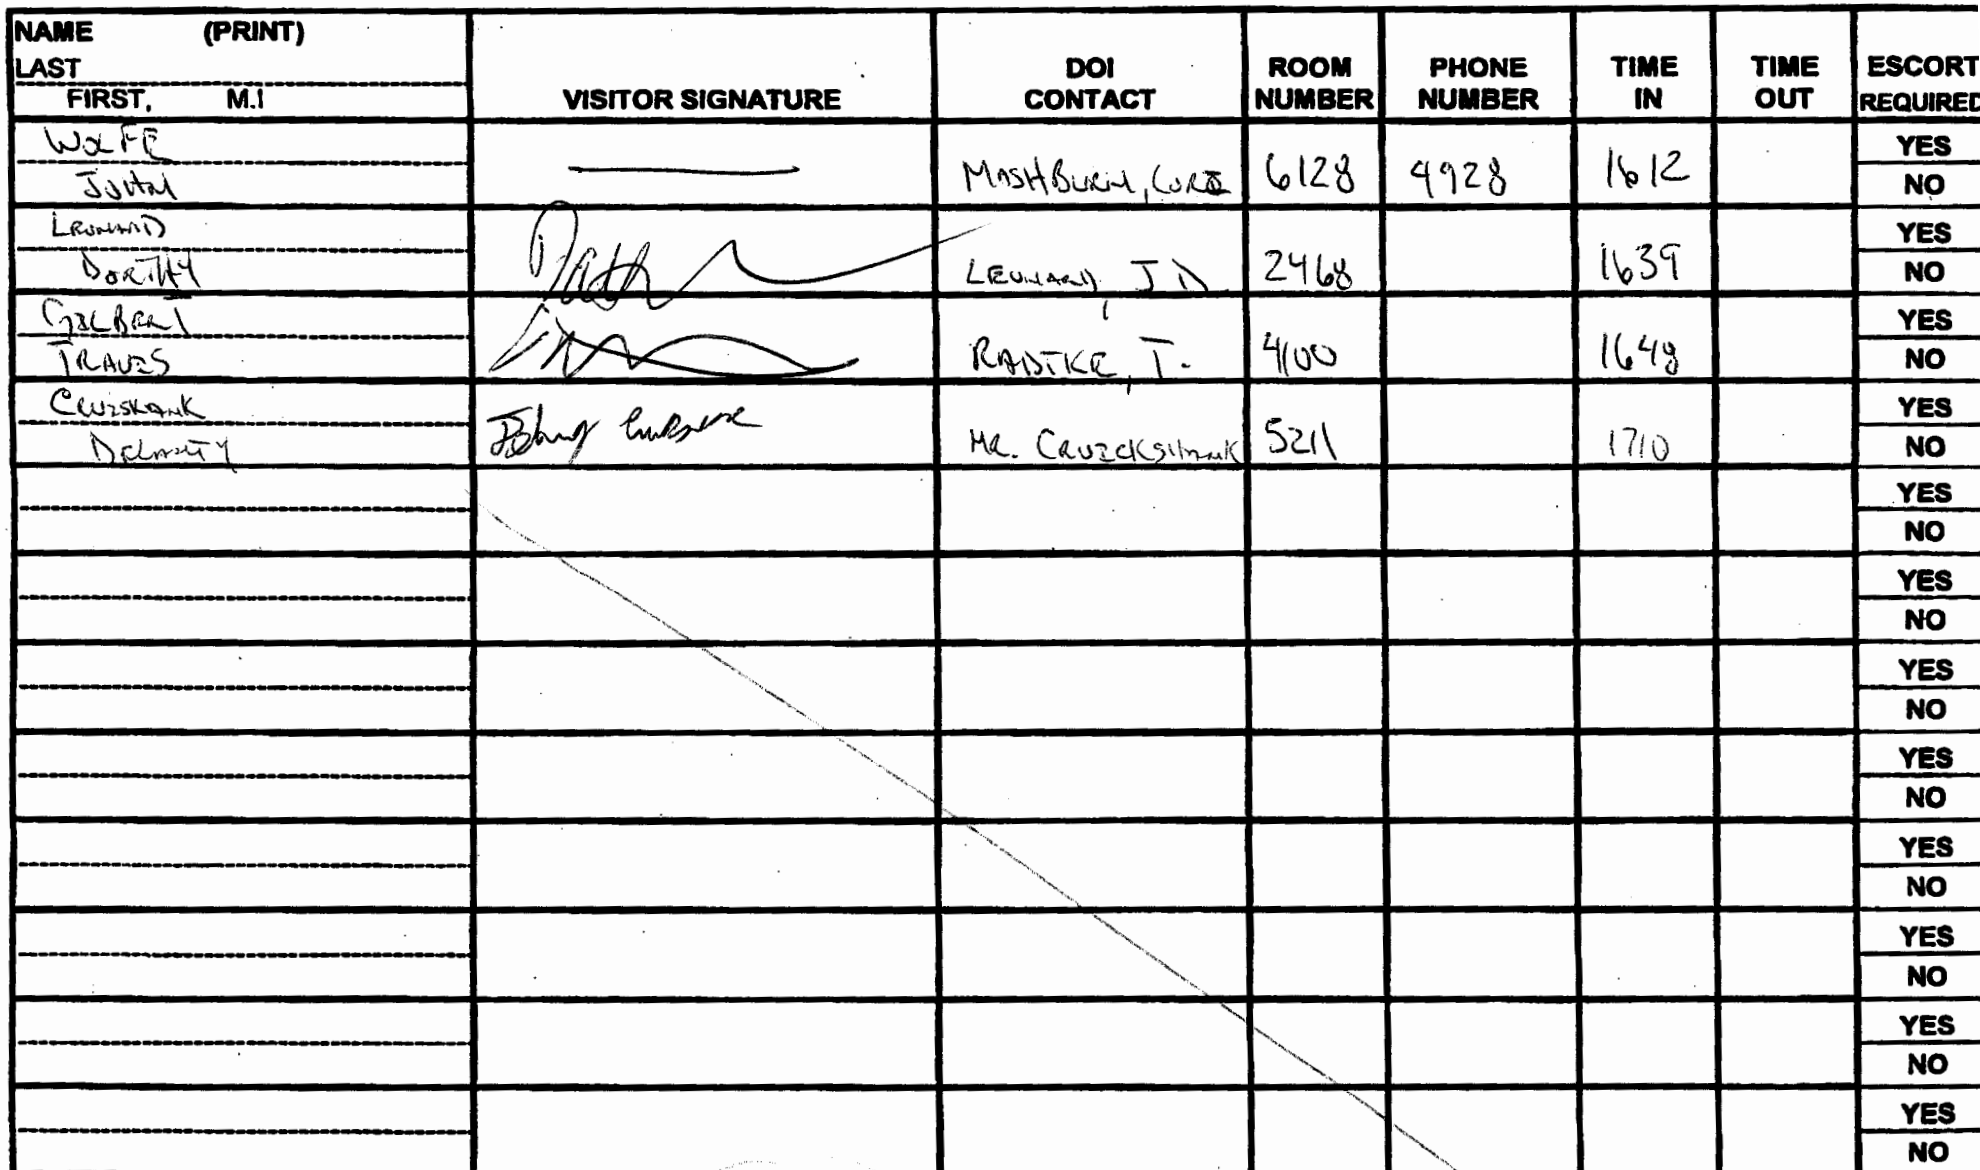 NAME (PRINT)
LAST
FIRST, M.I
VISITOR SIGNATURE
DOI CONTACT
ROOM NUMBER
PHONE NUMBER
TIME IN
TIME OUT
ESCORT REQUIRED
WOLFE
JOHN
MASHBURN, CORI
6128
4928
1612
YES
NO
LEONARD
DORTHY
LEONARD, J D
2468
1639
YES
NO
GILBERT
TRAVIS
RADTKE, T.
4100
1648
YES
NO
MR. CRUICKSHANK
5211
1710
YES
NO
YES
NO
YES
NO
YES
NO
YES
NO
YES
NO
YES
NO
YES
NO
YES
NO